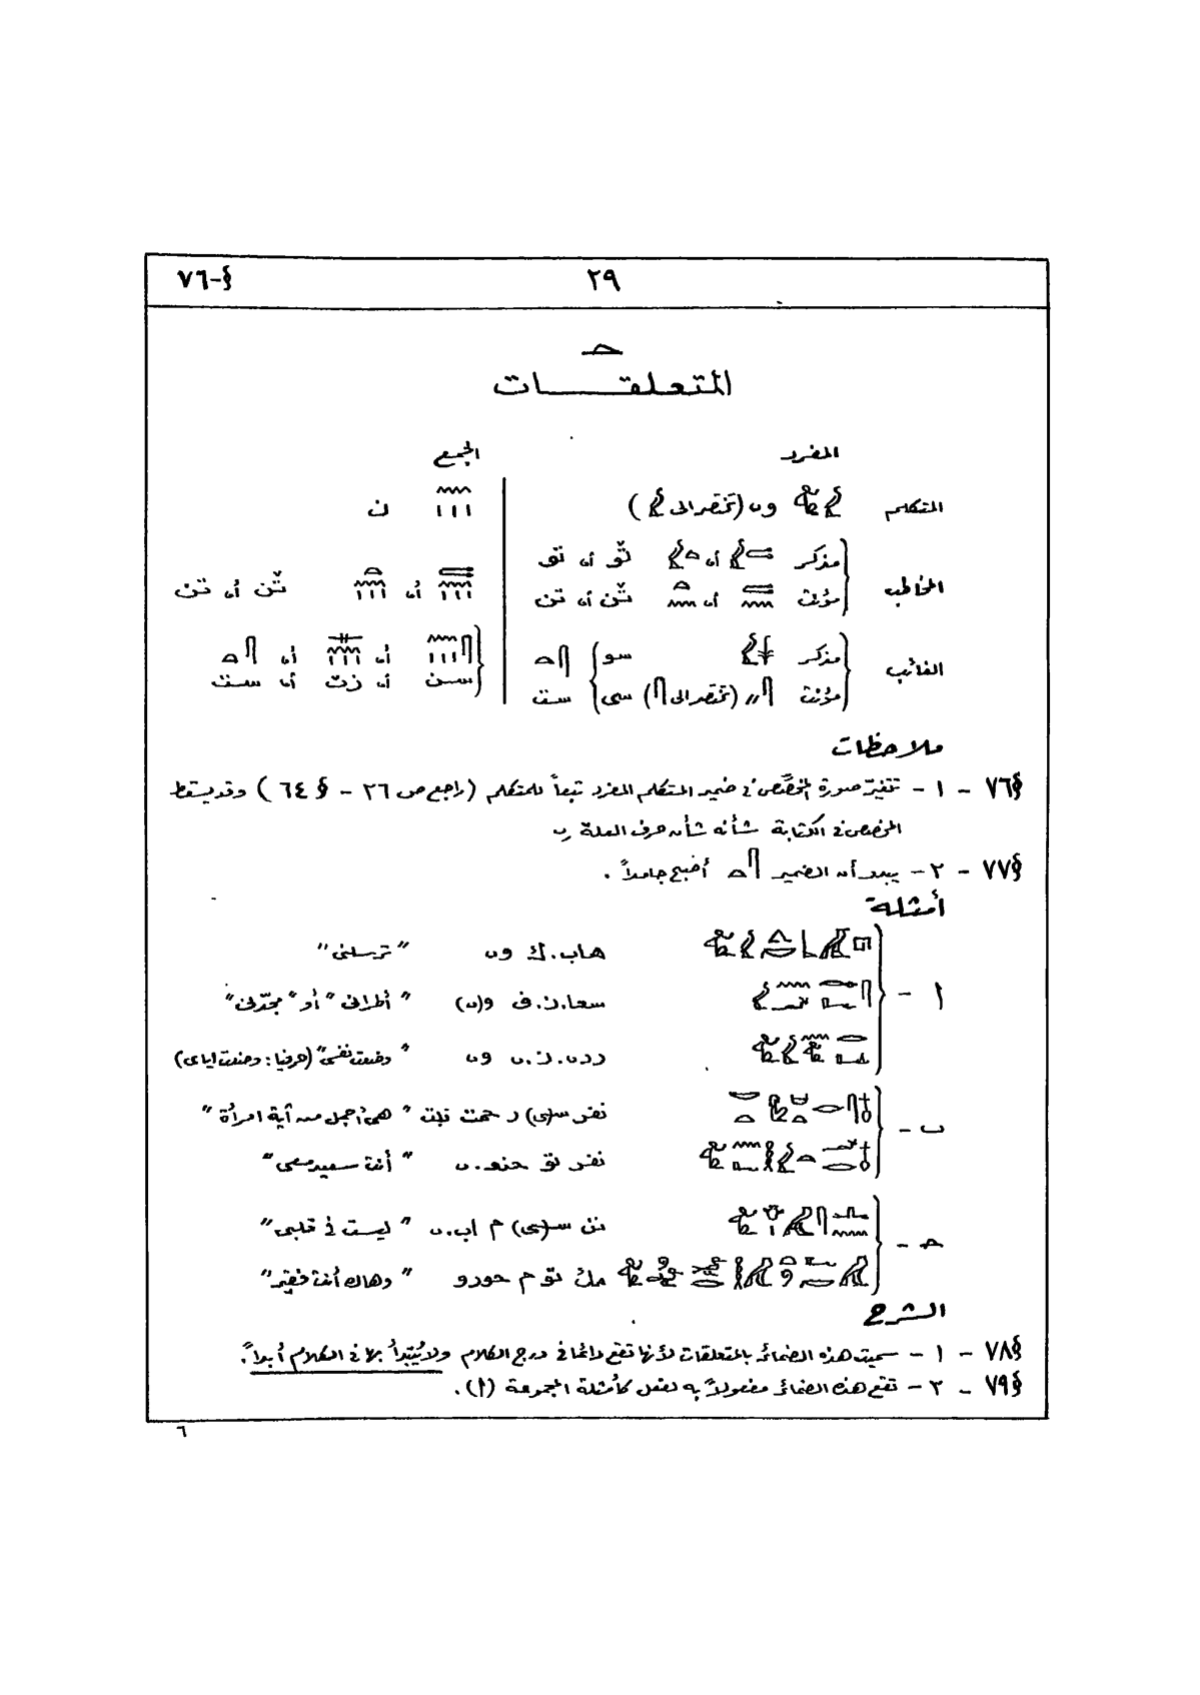 §-٧٦
٢٩
حـ
المتعلقات
المفرد
الجمع
المتكلم
(تختصر الى
ن
المخاطب
مذكر
أو
ثو أو تو
أو
ثن أو تن
مؤنث
أو
ثن أو تن
الغائب
مذكر
سو
أو
أو
مؤنث
(تختصر الى
) سى
ست
سن أو زن أو ست
ملاحظات
§٧٦ - ١ - تتغيّر صورة المخصّص فى ضمير المتكلم المفرد تبعاً للمتكلم (راجع ص ٢٦ - § ٦٤) وقد يسقط
المخصص فى الكتابة شأنه شأن حرف العلة ى
§٧٧ - ٢ - يبدو أن الضمير أصبح جامداً .
أمثلة
هاب.ك وى "ترسلنى"
ا -
سعا.ن.ف و(ى) "أطرانى" أو "مجّدنى"
ردى.ن.ى وى "وضعت نفسى" (حرفيا: وضعت اياى)
نفر س(ى) ر حمت نبت "هى أجمل من أية امرأة"
ب -
نفر تو حنع.ى "أنت سعيد معى"
نن س(ى) م اب.ى "ليست فى قلبى"
حـ -
مك تو م حورو "وهاك أنت فقير"
الشرح
§٧٨ - ١ - سميت هذه الضمائر بالمتعلقات لأنها تقع دائما فى درج الكلام ولا يُبتدأ بها فى الكلام أبداً.
§٧٩ - ٢ - تقع هذه الضمائر مفعولاً به لفعل كأمثلة المجموعة (ا).
٦